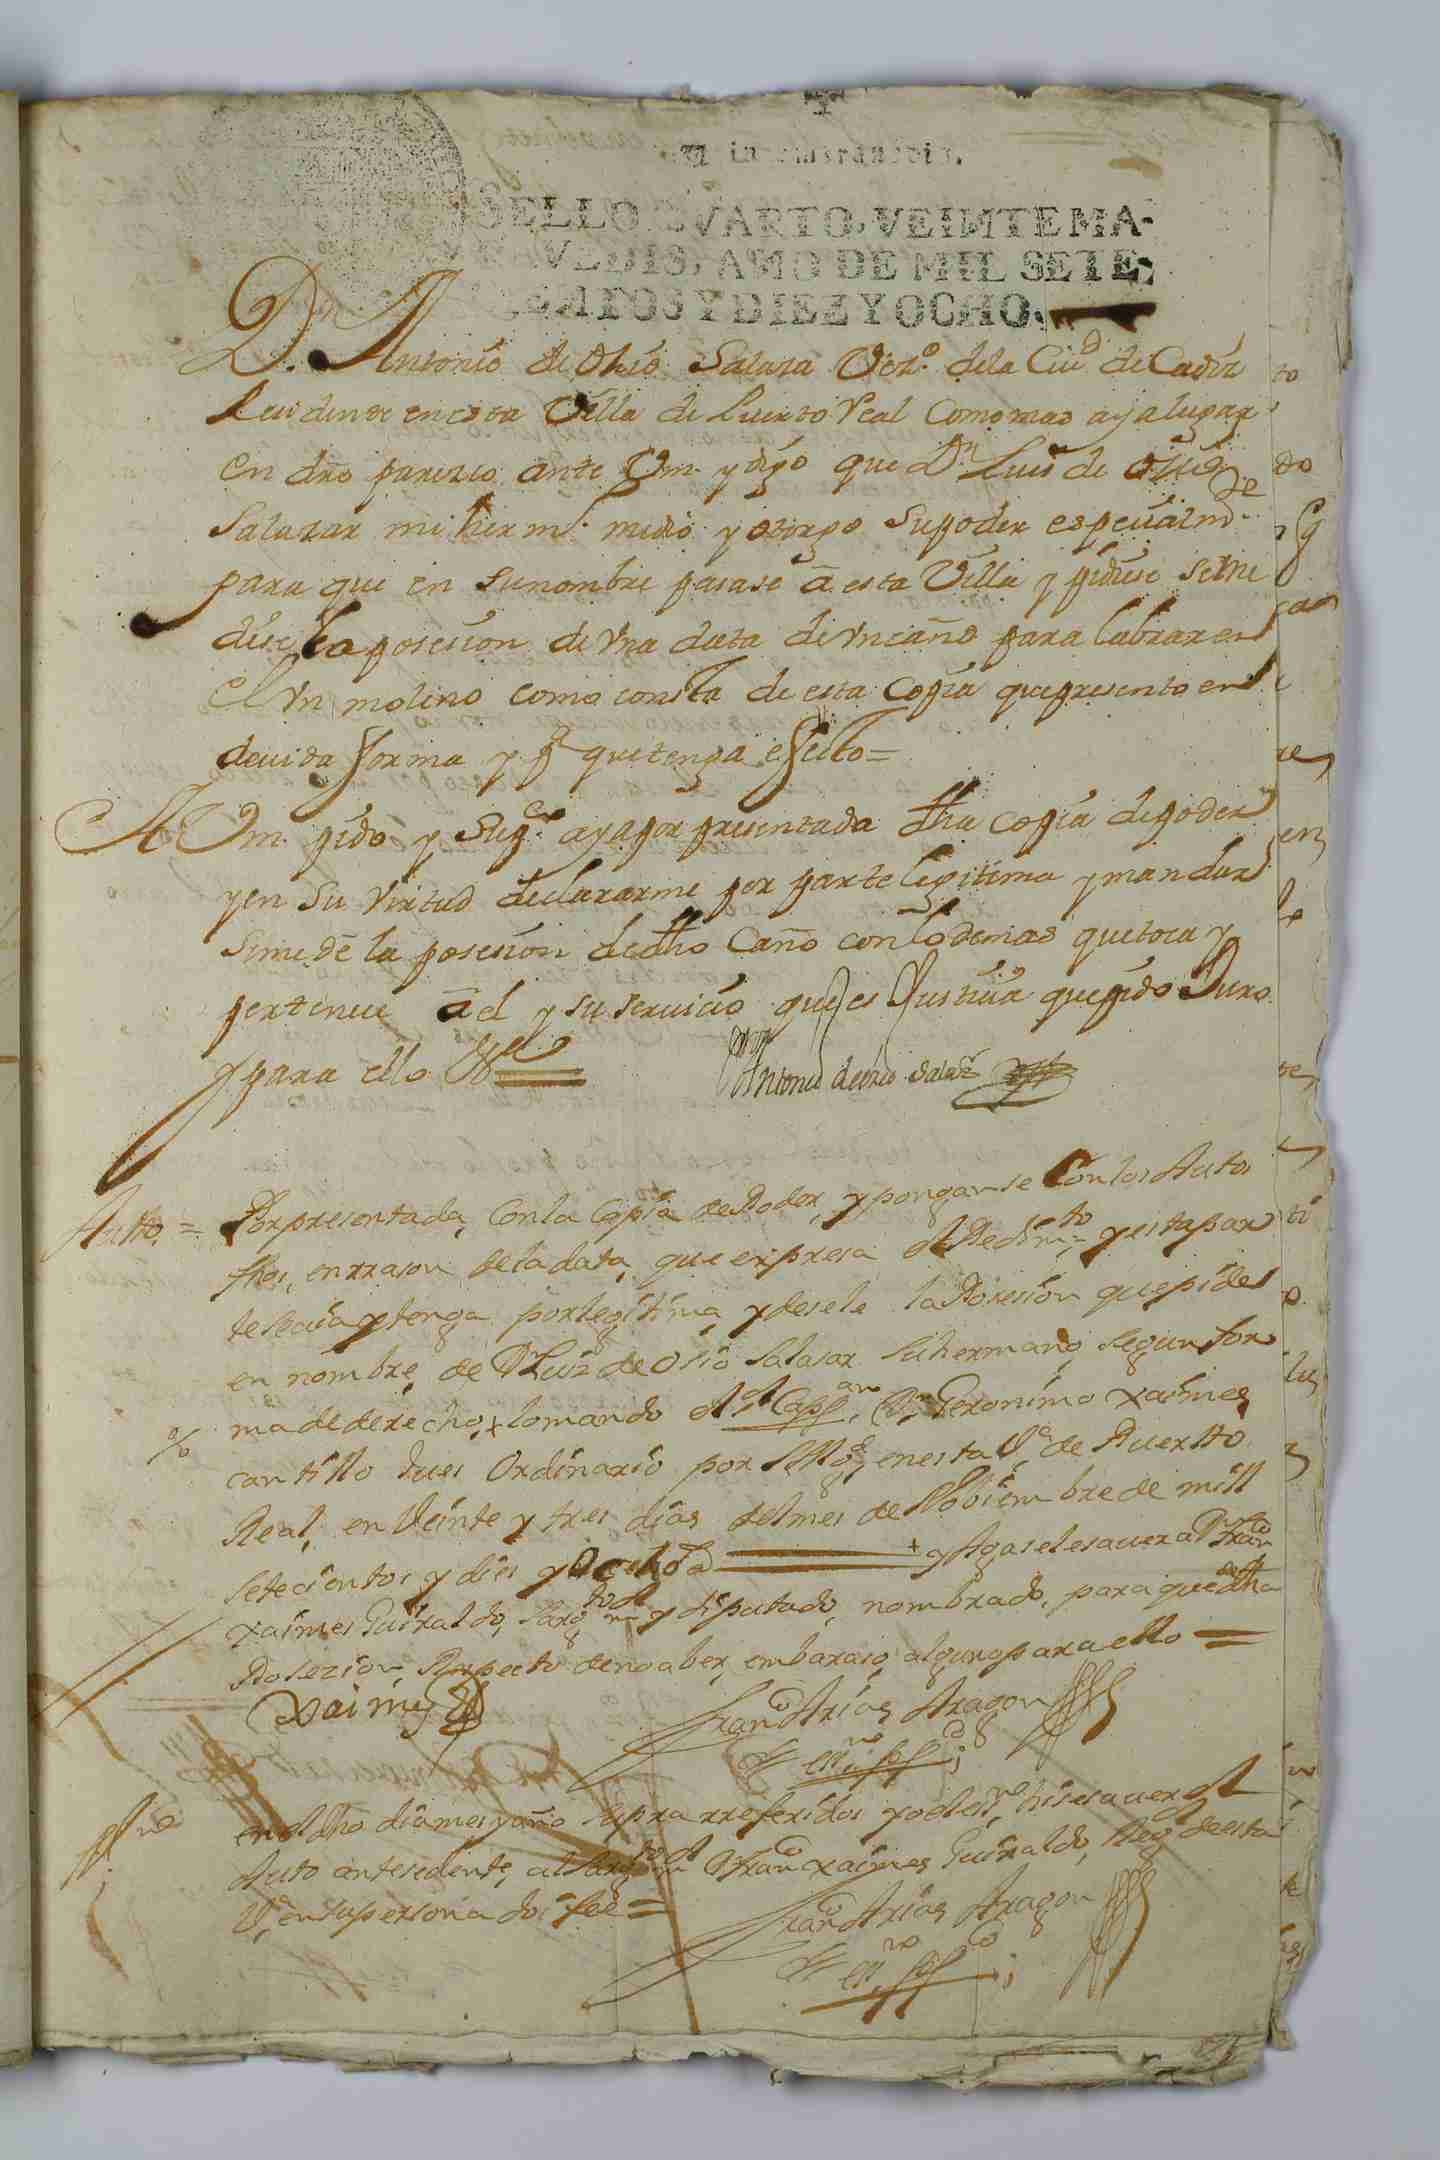 SELLO QVARTO, VEINTE MA-
RAVEDIS, AÑO DE MIL SETE-
CIENTOS Y DIEZ Y OCHO.
Dn. Antonio de Osio Salaza Vezo. dela Ciud de Cadiz
Recidente en esta Villa de Puerto Real Como mas aya lugar
en dro paresco ante Vm. y digo que Dn Luis de Osio
Salazar mi herm.o me dio y otorgo Su poder especialmte
para que en Su nombre pasase â esta Villa y pidiese Se me
diese la posesion de Vna data de Vn caño para labrar en
el Vn molino como consta de esta Copia que presento en
devida forma y pa que tenga efecto =
A Vm. pido y Supco aya por presentada dha copia de poder
y en Su Virtud declararme por parte legitima y mandar
Se me dê la posesion de dho Caño con lo demas que toca y
pertenece â el y su servicio que es Justicia que pido Juro
y para ello &
Antonio de osio Salazr
Autto = Por presentada, Con la Copia de Poder, y ponganse Con los Autos
fhos, en rrason de la data, que expresa el Pedimto y esta par
te se aia y tenga por legitima, y desele la Posesion que pide
en nombre, de Dn Luis de Osio Salasar su hermano, segun for
ma de derecho, + lo mando el Sr Cappan Dn Geronimo Xaimes
cantillo Jues Ordinario por Su Mgd, en esta Va de Puertto
Real, en Veinte y tres dias del mes de Nobiembre de mill
setecientos y dies y Ocho a + y Agasele saver a Dn Franco
Xaimes Guiraldo, Sargto mr y diputado, nombrado, para que de dha
Posezion, Respecto de no aber, embaraso, alguno para ello =
Xaimes
Franco Arias Aragon
essno ppco
en dho dia mes y año supra rreferidos yo el essno hise saver el
Auto antesedente, al Sargto mr Dn Franco Xaimes Guiraldo, Regor de esta
Va, en su persona doi fee =
Franco Arias Aragon
essno ppco